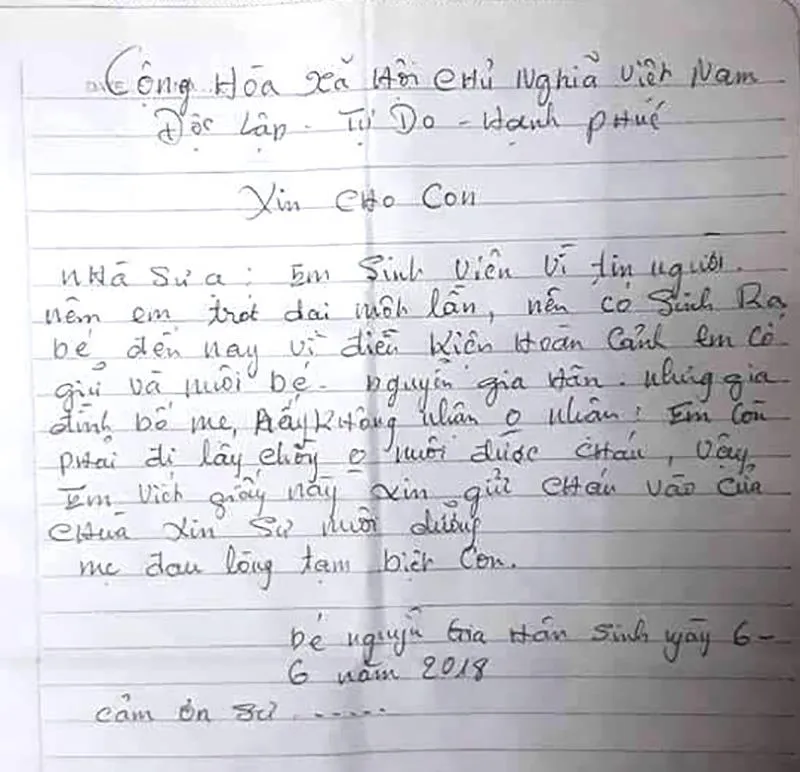 Cộng Hòa Xã Hôi CHủ Nghiã Việt Nam
Độc Lập - Tự Do - Hạnh PHúc
Xin CHo Con
NHà Sư a: Em Sinh Viên Vì tin người.
nêm em trót dai môt lần, nên có Sinh Ra
bé, đến nay vì điều Kiên Hoàn Cảnh em Cố
giữ và nuôi bé. nguyễn gia Hân. nhưng gia
đình bố mẹ, Ấy KHông nhân o nhân: Em Còn
PHải đi lấy chồng o nuôi được CHáu, Vây
Em Viết giấy này xin gửi CHáu Vào Cửa
CHuà Xin Sư nuôi dưỡng
mẹ đau lòng tạm biệt Con.
bé nguyễn Gia Hân Sinh ngày 6-
6 năm 2018
cảm ơn Sư ......